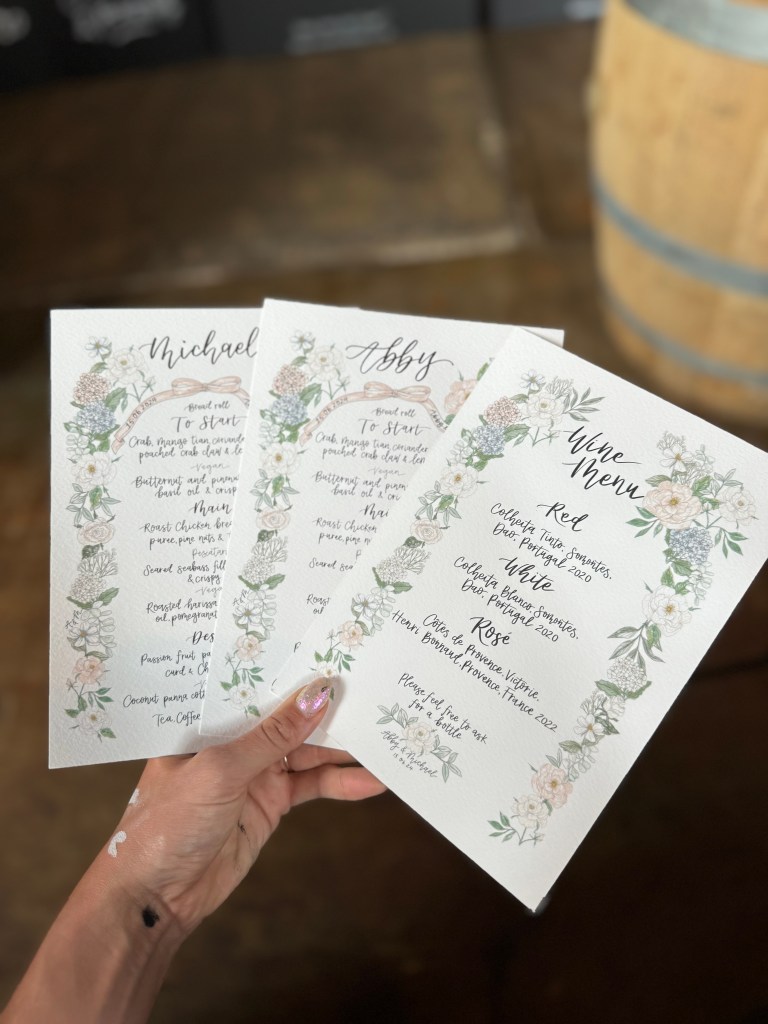 Michael
Bread roll
To Start
Crab, mango tian, coriander
poached crab claw & le
Vegan
Butternut and
basil oil & crisp
Main
Roast Chicken bre
puree, pine nuts &
Pescatar
Seared seabass fil
& crispy
Vega
Roasted harissa
oil, pomegranat
Des
Passion fruit pa
curd & Ch
Coconut panna cot
Tea, Coffee
Abby
Bread roll
To Start
Crab, mango tian, coriander
poached crab claw & lem
Vegan
Butternut and
basil oil & cri
Mai
Roast Chicken
puree, pine nuts
Pes
Seared
&
Roasted
oil
De
Passion
cur
Coconut
Tea
Wine
Menu
Red
Colheita Tinto, Somontes,
Dao, Portugal 2020
White
Colheita Blanco, Somontes,
Dao, Portugal 2020
Rosé
Côtes de Provence, Victorie,
Henri Bonnaud, Provence, France 2022
Please feel free to ask
for a bottle
Abby & Michael